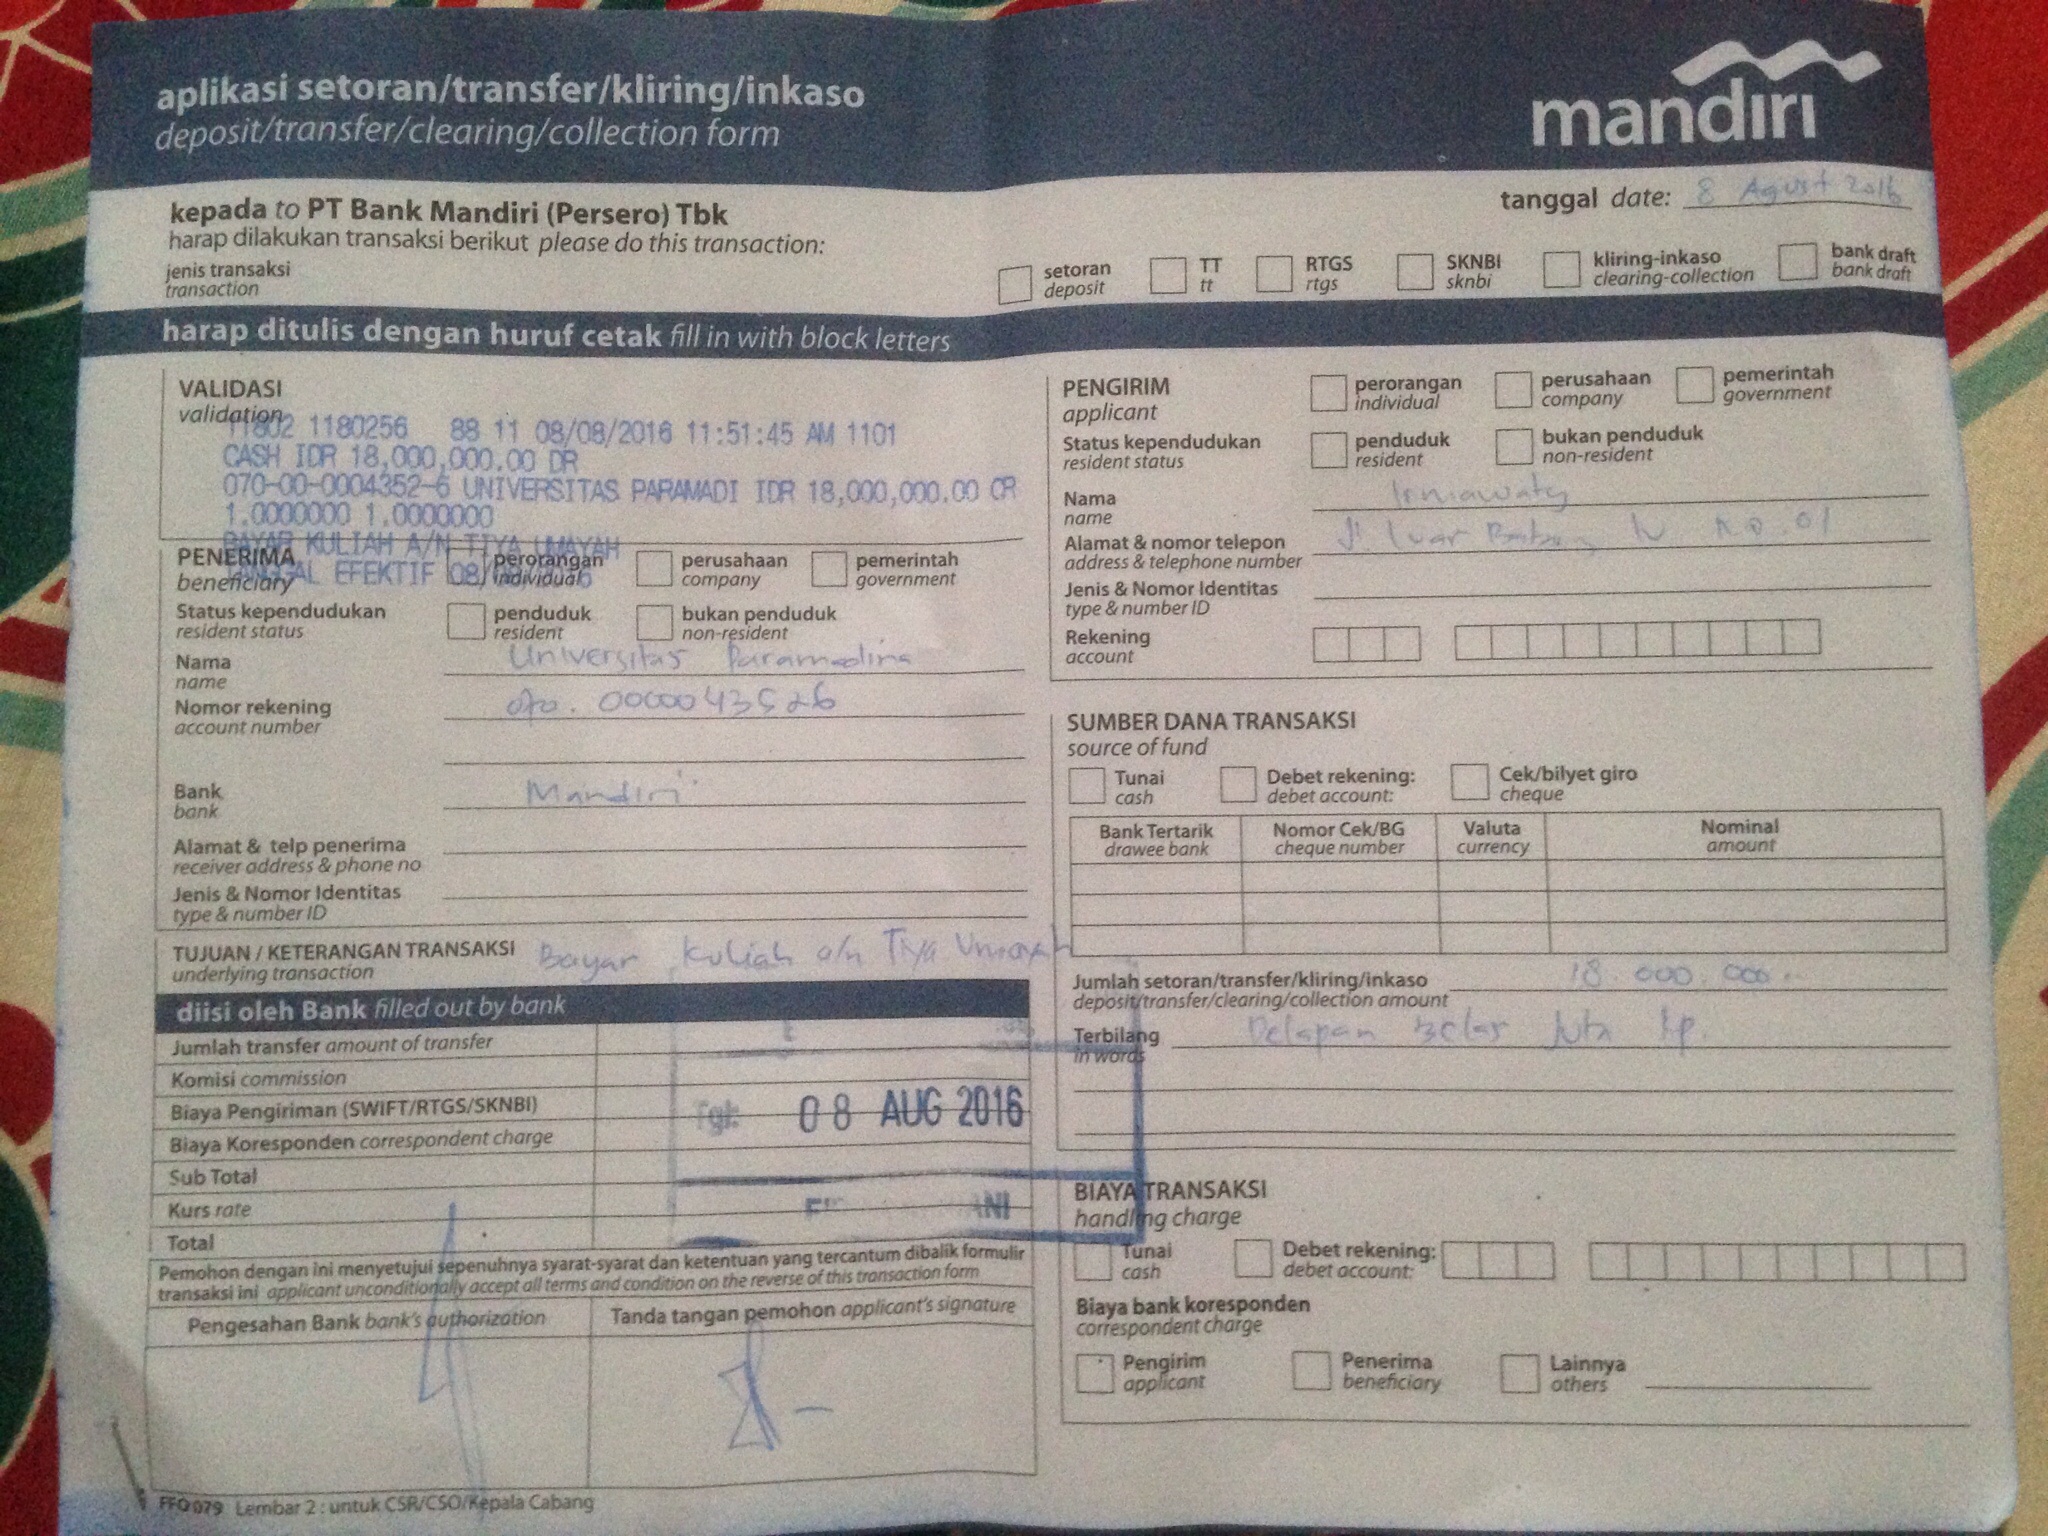 aplikasi setoran/transfer/kliring/inkaso
deposit/transfer/clearing/collection form
mandırı
kepada to PT Bank Mandiri (Persero) Tbk
harap dilakukan transaksi berikut please do this transaction:
tanggal date: 8 Agust 2016
jenis transaksi
transaction
setoran
deposit
TT
tt
RTGS
rtgs
SKNBI
sknbi
kliring-inkaso
clearing-collection
bank draft
bank draft
harap ditulis dengan huruf cetak fill in with block letters
VALIDASI
validation
11802 1180256 88 11 08/08/2016 11:51:45 AM 1101
CASH IDR 18,000,000.00 DR
070-00-0004352-6 UNIVERSITAS PARAMADI IDR 18,000,000.00 CR
1.0000000 1.0000000
BAYAR KULIAH A/N TIYA UMAYAH
EFEKTIF 08/08/2016
PENERIMA
beneficiary
perorangan
individual
perusahaan
company
pemerintah
government
Status kependudukan
resident status
penduduk
resident
bukan penduduk
non-resident
Nama Universitas Paramadina
name
Nomor rekening 070. 0000043526
account number
Bank Mandiri
bank
Alamat & telp penerima
receiver address & phone no
Jenis & Nomor Identitas
type & number ID
TUJUAN / KETERANGAN TRANSAKSI Bayar Kuliah a/n Tiya Umayah
underlying transaction
diisi oleh Bank filled out by bank
Jumlah transfer amount of transfer
Komisi commission
Biaya Pengiriman (SWIFT/RTGS/SKNBI)
Biaya Koresponden correspondent charge
Sub Total
Kurs rate
Total
Tgl. 08 AUG 2016
Pemohon dengan ini menyetujui sepenuhnya syarat-syarat dan ketentuan yang tercantum dibalik formulir
transaksi ini applicant unconditionally accept all terms and condition on the reverse of this transaction form
Pengesahan Bank bank's authorization
Tanda tangan pemohon applicant's signature
FFO 079 Lembar 2 : untuk CSR/CSO/Kepala Cabang
PENGIRIM
applicant
perorangan
individual
perusahaan
company
pemerintah
government
Status kependudukan
resident status
penduduk
resident
bukan penduduk
non-resident
Nama Irmawaty
name
Alamat & nomor telepon Jl. Luar Batang IV No. 01
address & telephone number
Jenis & Nomor Identitas
type & number ID
Rekening
account
SUMBER DANA TRANSAKSI
source of fund
Tunai
cash
Debet rekening:
debet account:
Cek/bilyet giro
cheque
Bank Tertarik
drawee bank
Nomor Cek/BG
cheque number
Valuta
currency
Nominal
amount
Jumlah setoran/transfer/kliring/inkaso 18.000.000.-
deposit/transfer/clearing/collection amount
Terbilang Delapan belas juta rp.
in words
BIAYA TRANSAKSI
handling charge
Tunai
cash
Debet rekening:
debet account:
Biaya bank koresponden
correspondent charge
Pengirim
applicant
Penerima
beneficiary
Lainnya
others